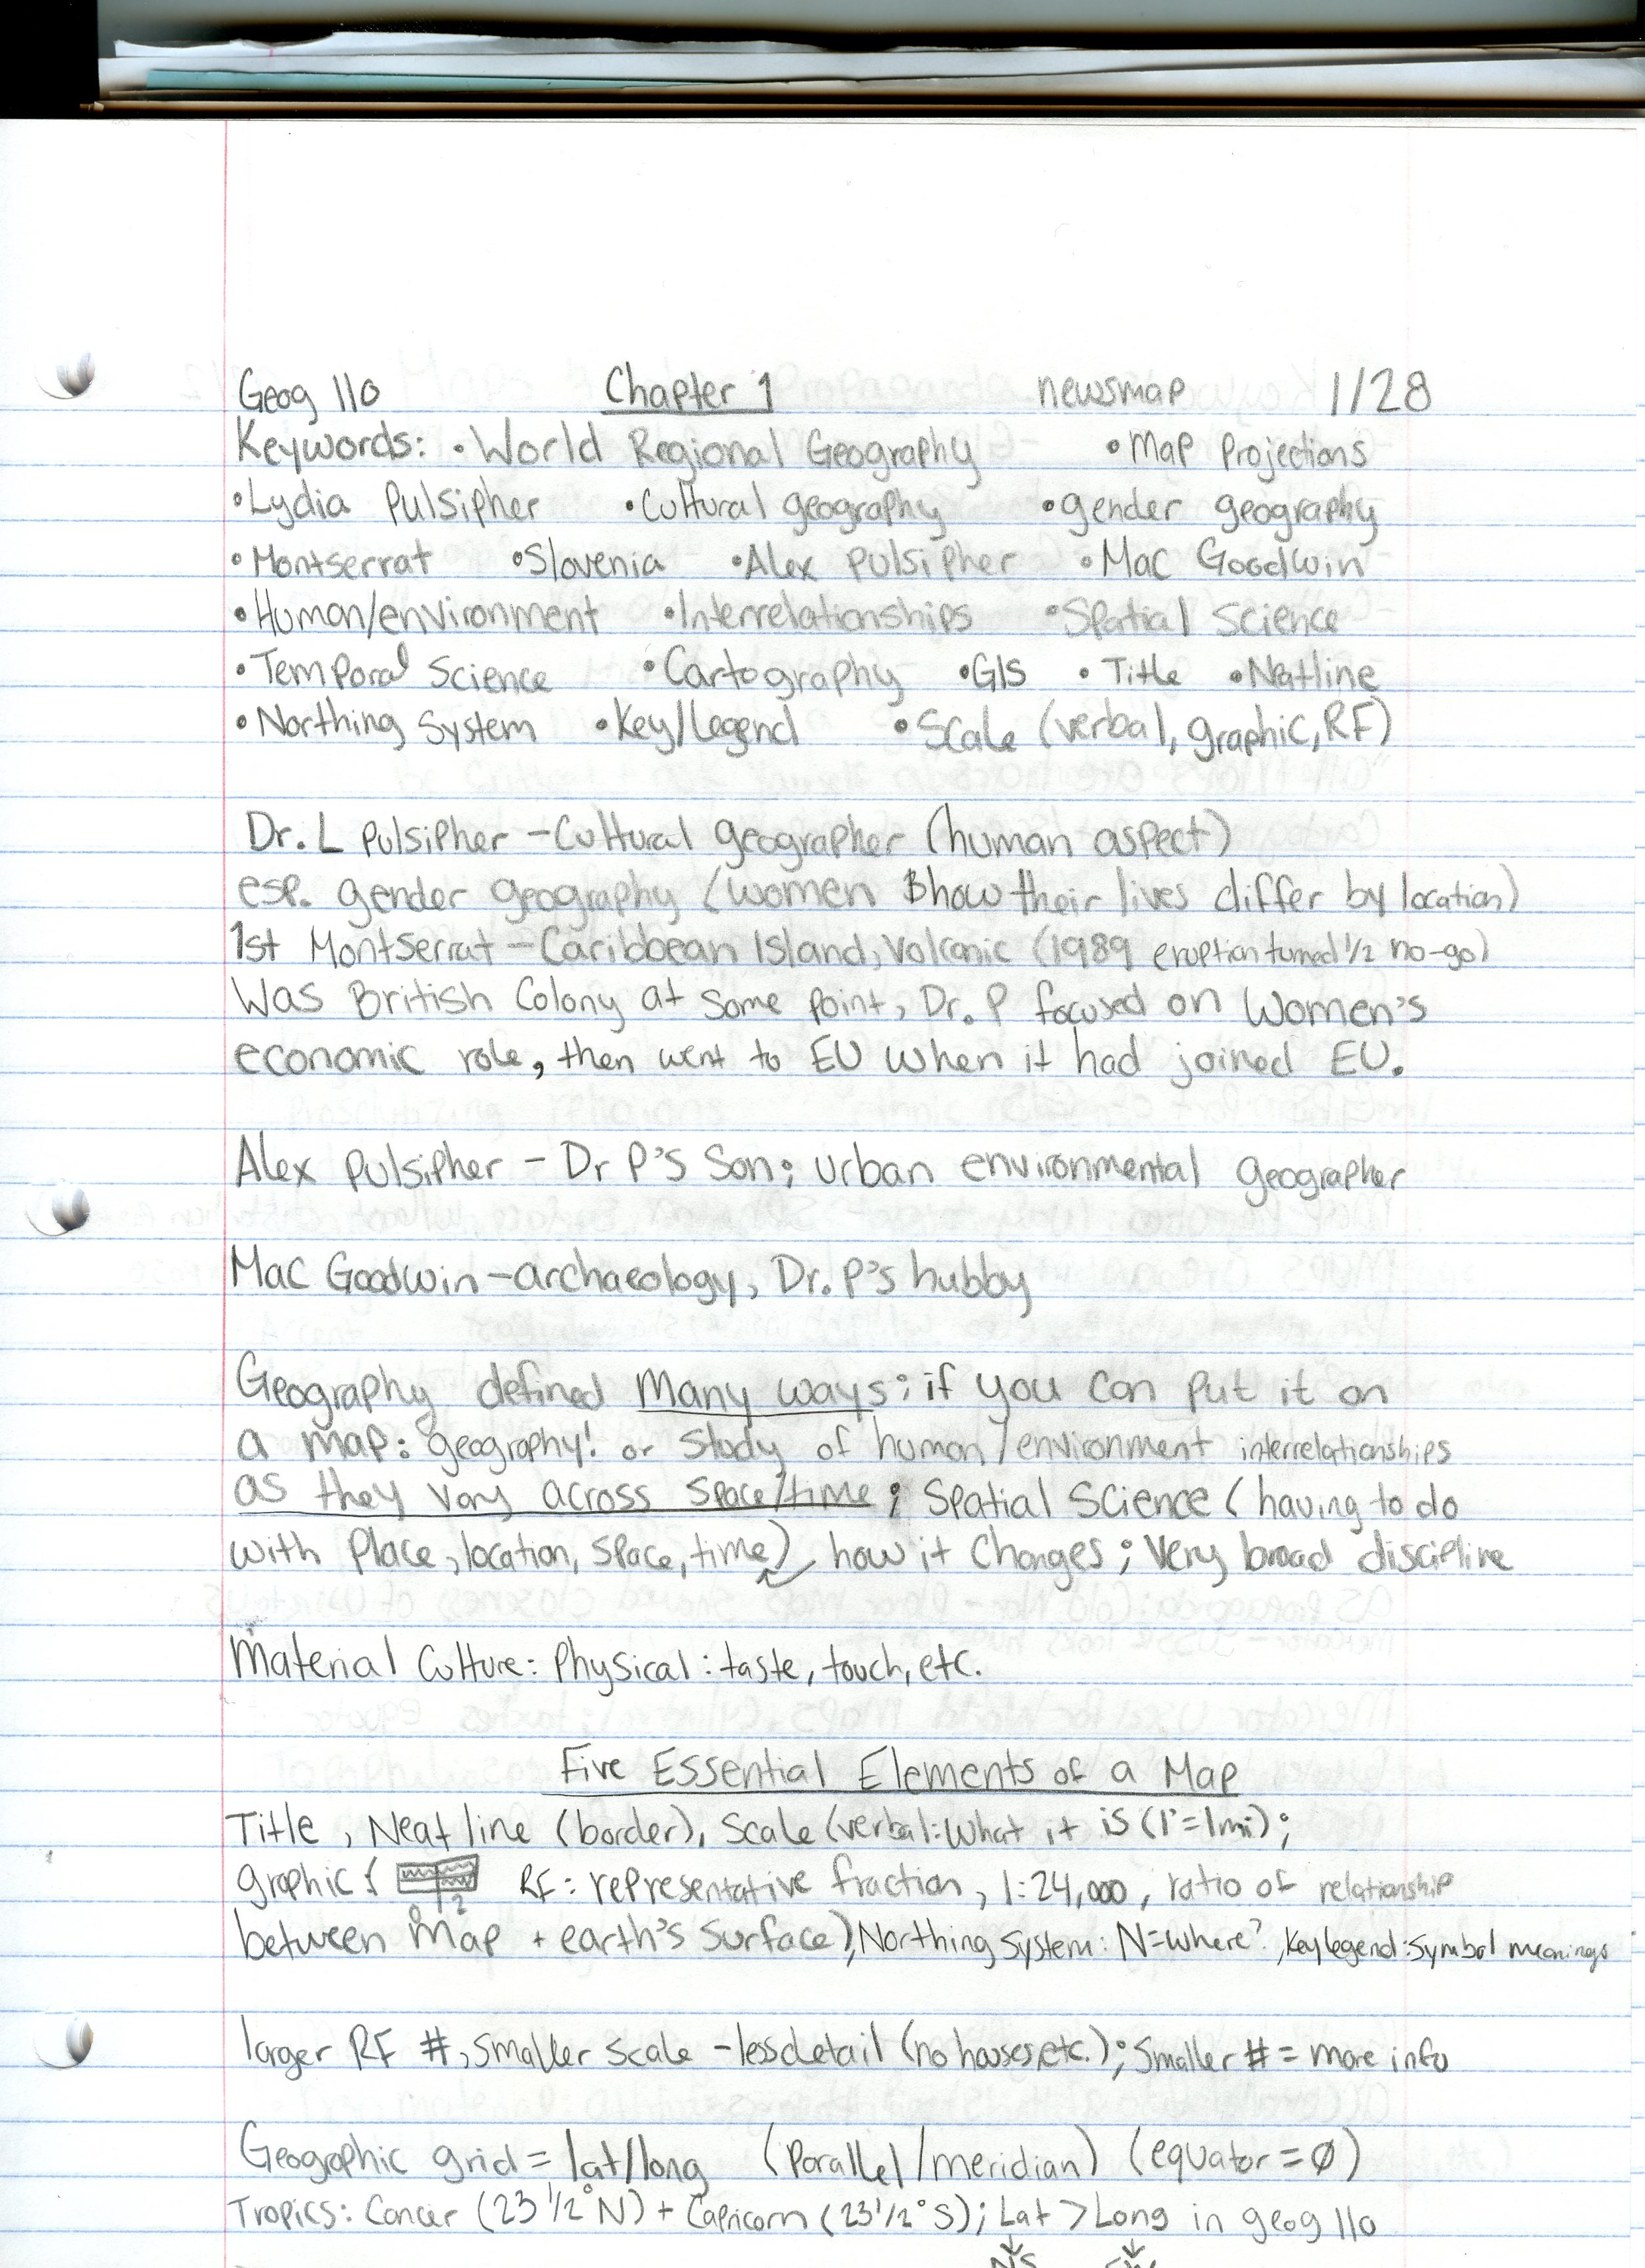 Geog 110 Chapter 1 newsmap 1/28
Keywords: • World Regional Geography • Map Projections
• Lydia Pulsipher • Cultural geography • gender geography
• Montserrat • Slovenia • Alex Pulsipher • Mac Goodwin
• Human/environment • Interrelationships • Spatial Science
• Temporal Science • Cartography • GIS • Title • Neatline
• Northing System • Key/legend • Scale (verbal, graphic, RF)
Dr. L Pulsipher - Cultural geographer (human aspect)
esp. gender geography (women & how their lives differ by location)
1st Montserrat - Caribbean Island, Volcanic (1989 eruption turned 1/2 no-go)
Was British Colony at some point, Dr. P focused on Women's
economic role, then went to EU when it had joined EU.
Alex Pulsipher - Dr P's Son; urban environmental geographer
Mac Goodwin - archaeology, Dr. P's hubby
Geography defined many ways; if you can put it on
a map: geography! or Study of human/environment interrelationships
as they vary across space/time; Spatial Science (having to do
with Place, location, space, time), how it changes; Very broad discipline
Material Culture: Physical: taste, touch, etc.
Five Essential Elements of a Map
Title, Neat line (border), Scale (verbal: What it is (1"=1mi);
graphic: RF: representative fraction, 1:24,000, ratio of relationship
0 1 2
between map + earth's surface), Northing System: N=where?, Key legend: Symbol meanings
larger RF #, Smaller scale - less detail (no houses, etc.); Smaller # = more info
Geographic grid = lat/long (Parallel/meridian) (equator = Ø)
Tropics: Cancer (23 1/2° N) + Capricorn (23 1/2° S); Lat > Long in geog 110
NS EW